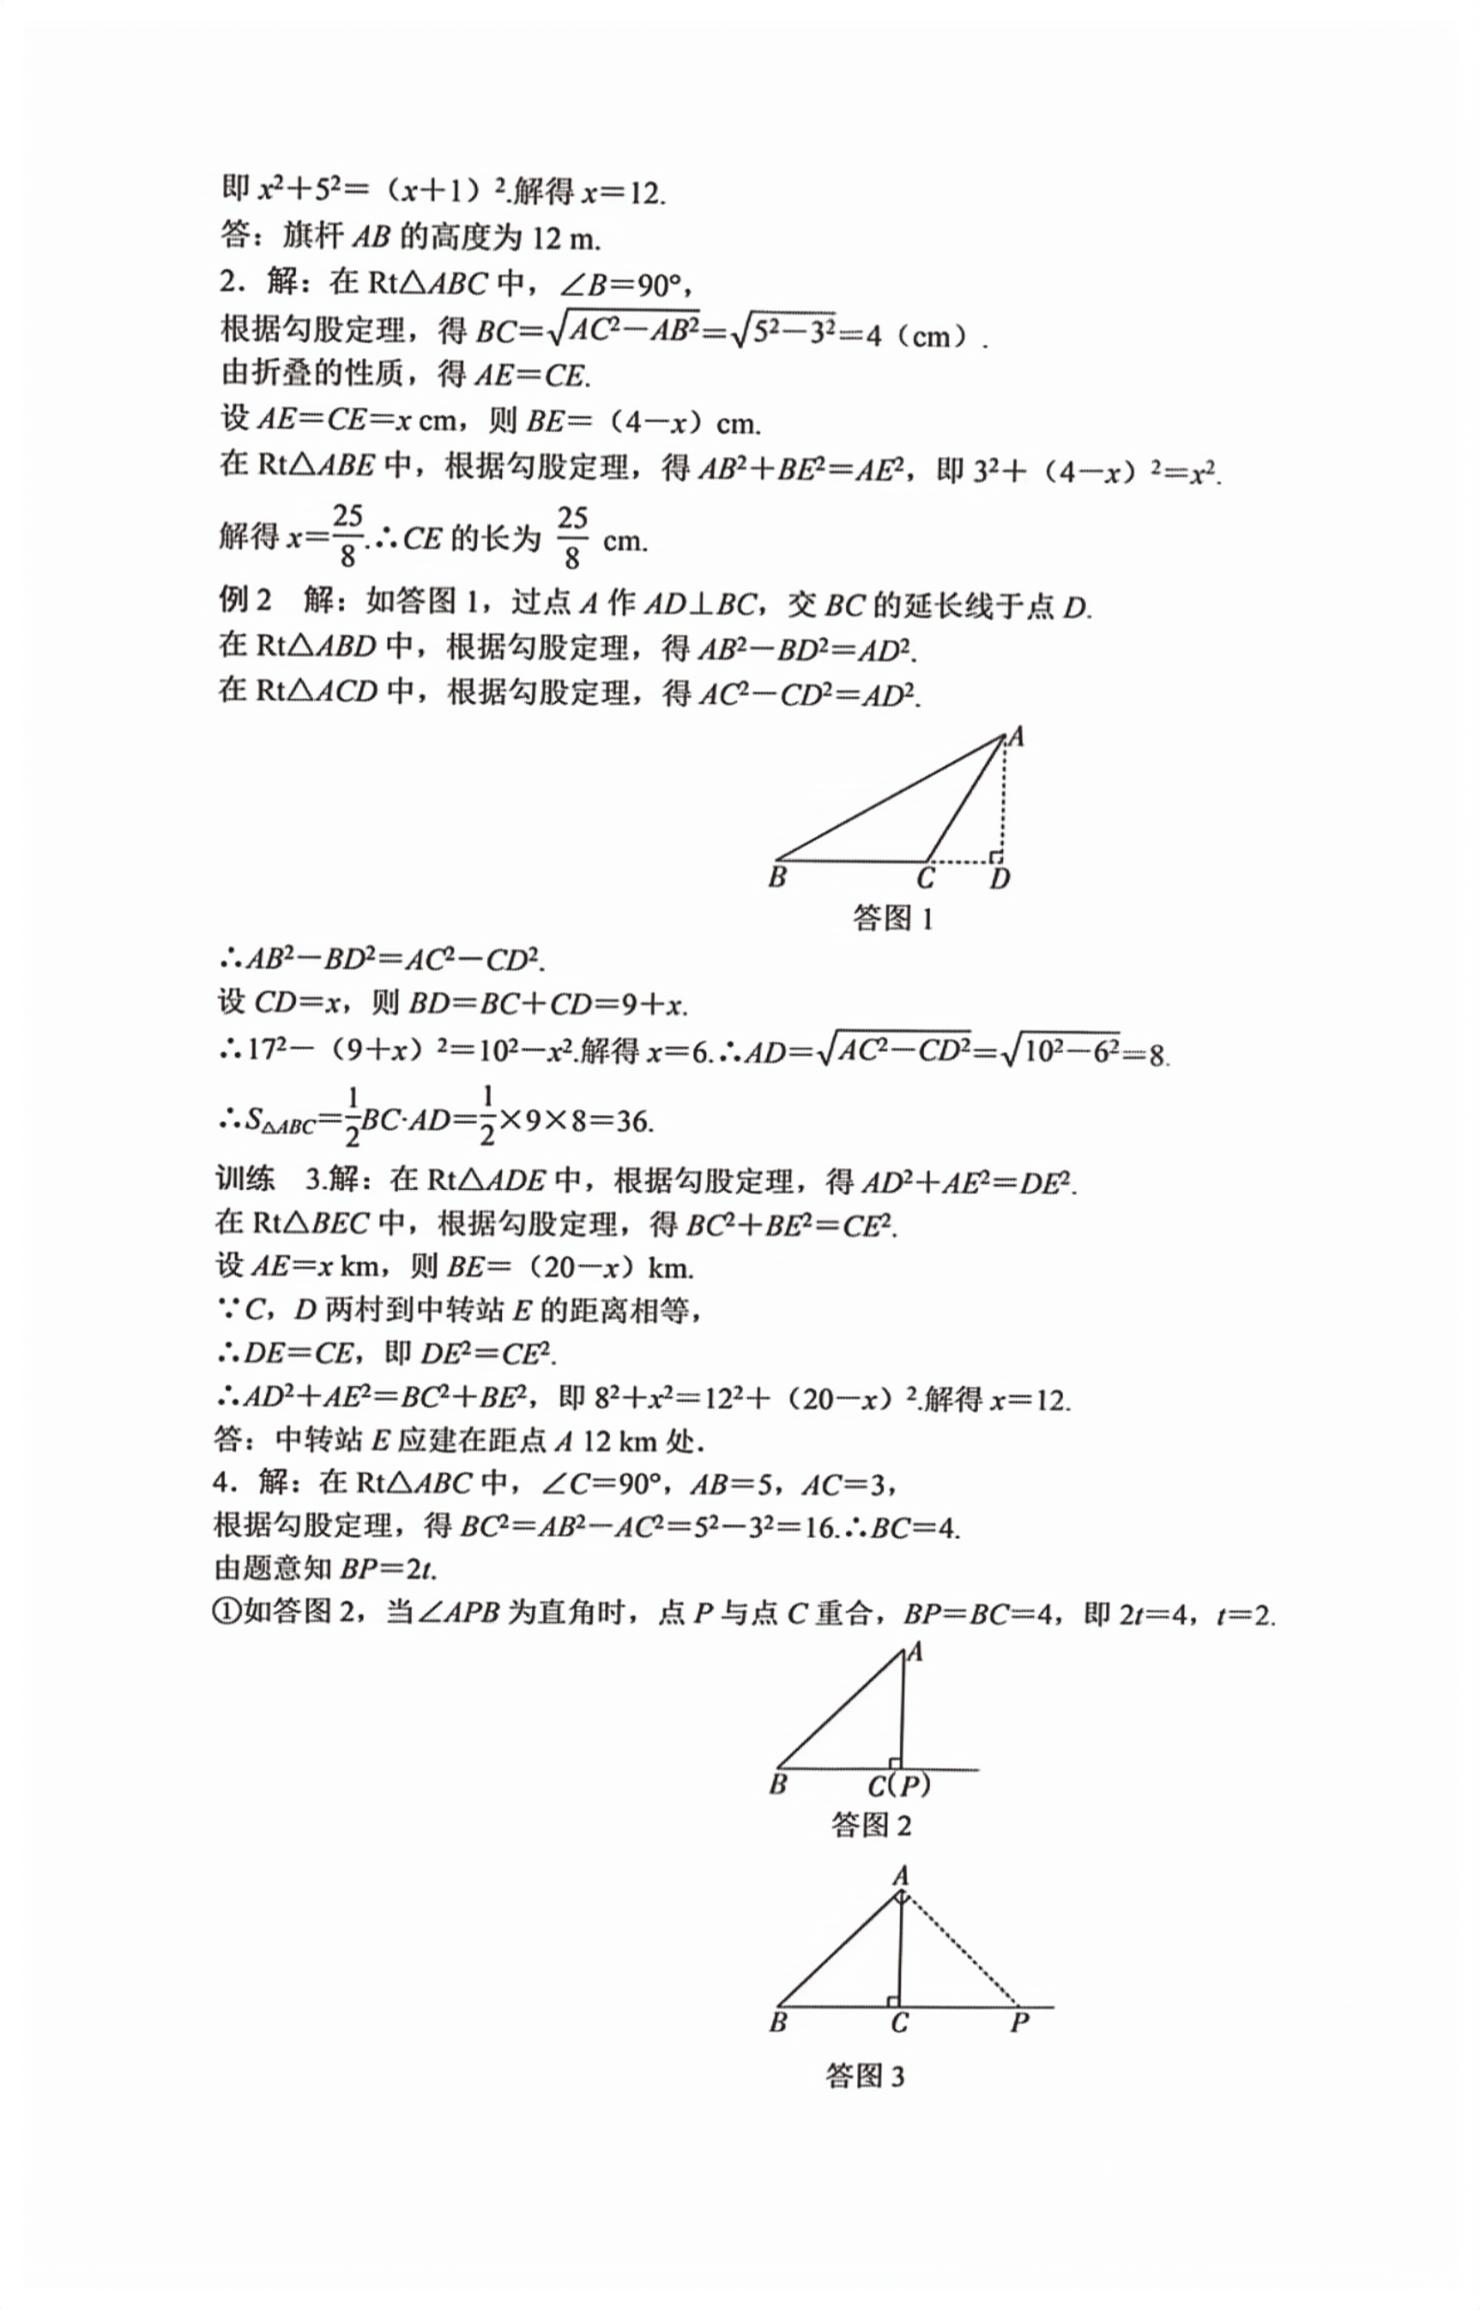 即 x²+5²=（x+1）².解得 x=12.
答：旗杆 AB 的高度为 12 m.
2．解：在 Rt△ABC 中，∠B=90°，
根据勾股定理，得 BC=√(AC²-AB²)=√(5²-3²)=4（cm）.
由折叠的性质，得 AE=CE.
设 AE=CE=x cm，则 BE=（4-x）cm.
在 Rt△ABE 中，根据勾股定理，得 AB²+BE²=AE²，即 3²+（4-x）²=x².
解得 x=25/8.∴CE 的长为 25/8 cm.
例 2 解：如答图 1，过点 A 作 AD⊥BC，交 BC 的延长线于点 D.
在 Rt△ABD 中，根据勾股定理，得 AB²-BD²=AD².
在 Rt△ACD 中，根据勾股定理，得 AC²-CD²=AD².
A
B C D
答图 1
∴AB²-BD²=AC²-CD².
设 CD=x，则 BD=BC+CD=9+x.
∴17²-（9+x）²=10²-x².解得 x=6.∴AD=√(AC²-CD²)=√(10²-6²)=8.
∴S△ABC=1/2BC·AD=1/2×9×8=36.
训练 3.解：在 Rt△ADE 中，根据勾股定理，得 AD²+AE²=DE².
在 Rt△BEC 中，根据勾股定理，得 BC²+BE²=CE².
设 AE=x km，则 BE=（20-x）km.
∵C，D 两村到中转站 E 的距离相等，
∴DE=CE，即 DE²=CE².
∴AD²+AE²=BC²+BE²，即 8²+x²=12²+（20-x）².解得 x=12.
答：中转站 E 应建在距点 A 12 km 处.
4．解：在 Rt△ABC 中，∠C=90°，AB=5，AC=3，
根据勾股定理，得 BC²=AB²-AC²=5²-3²=16.∴BC=4.
由题意知 BP=2t.
①如答图 2，当∠APB 为直角时，点 P 与点 C 重合，BP=BC=4，即 2t=4，t=2.
A
B C(P)
答图 2
A
B C P
答图 3